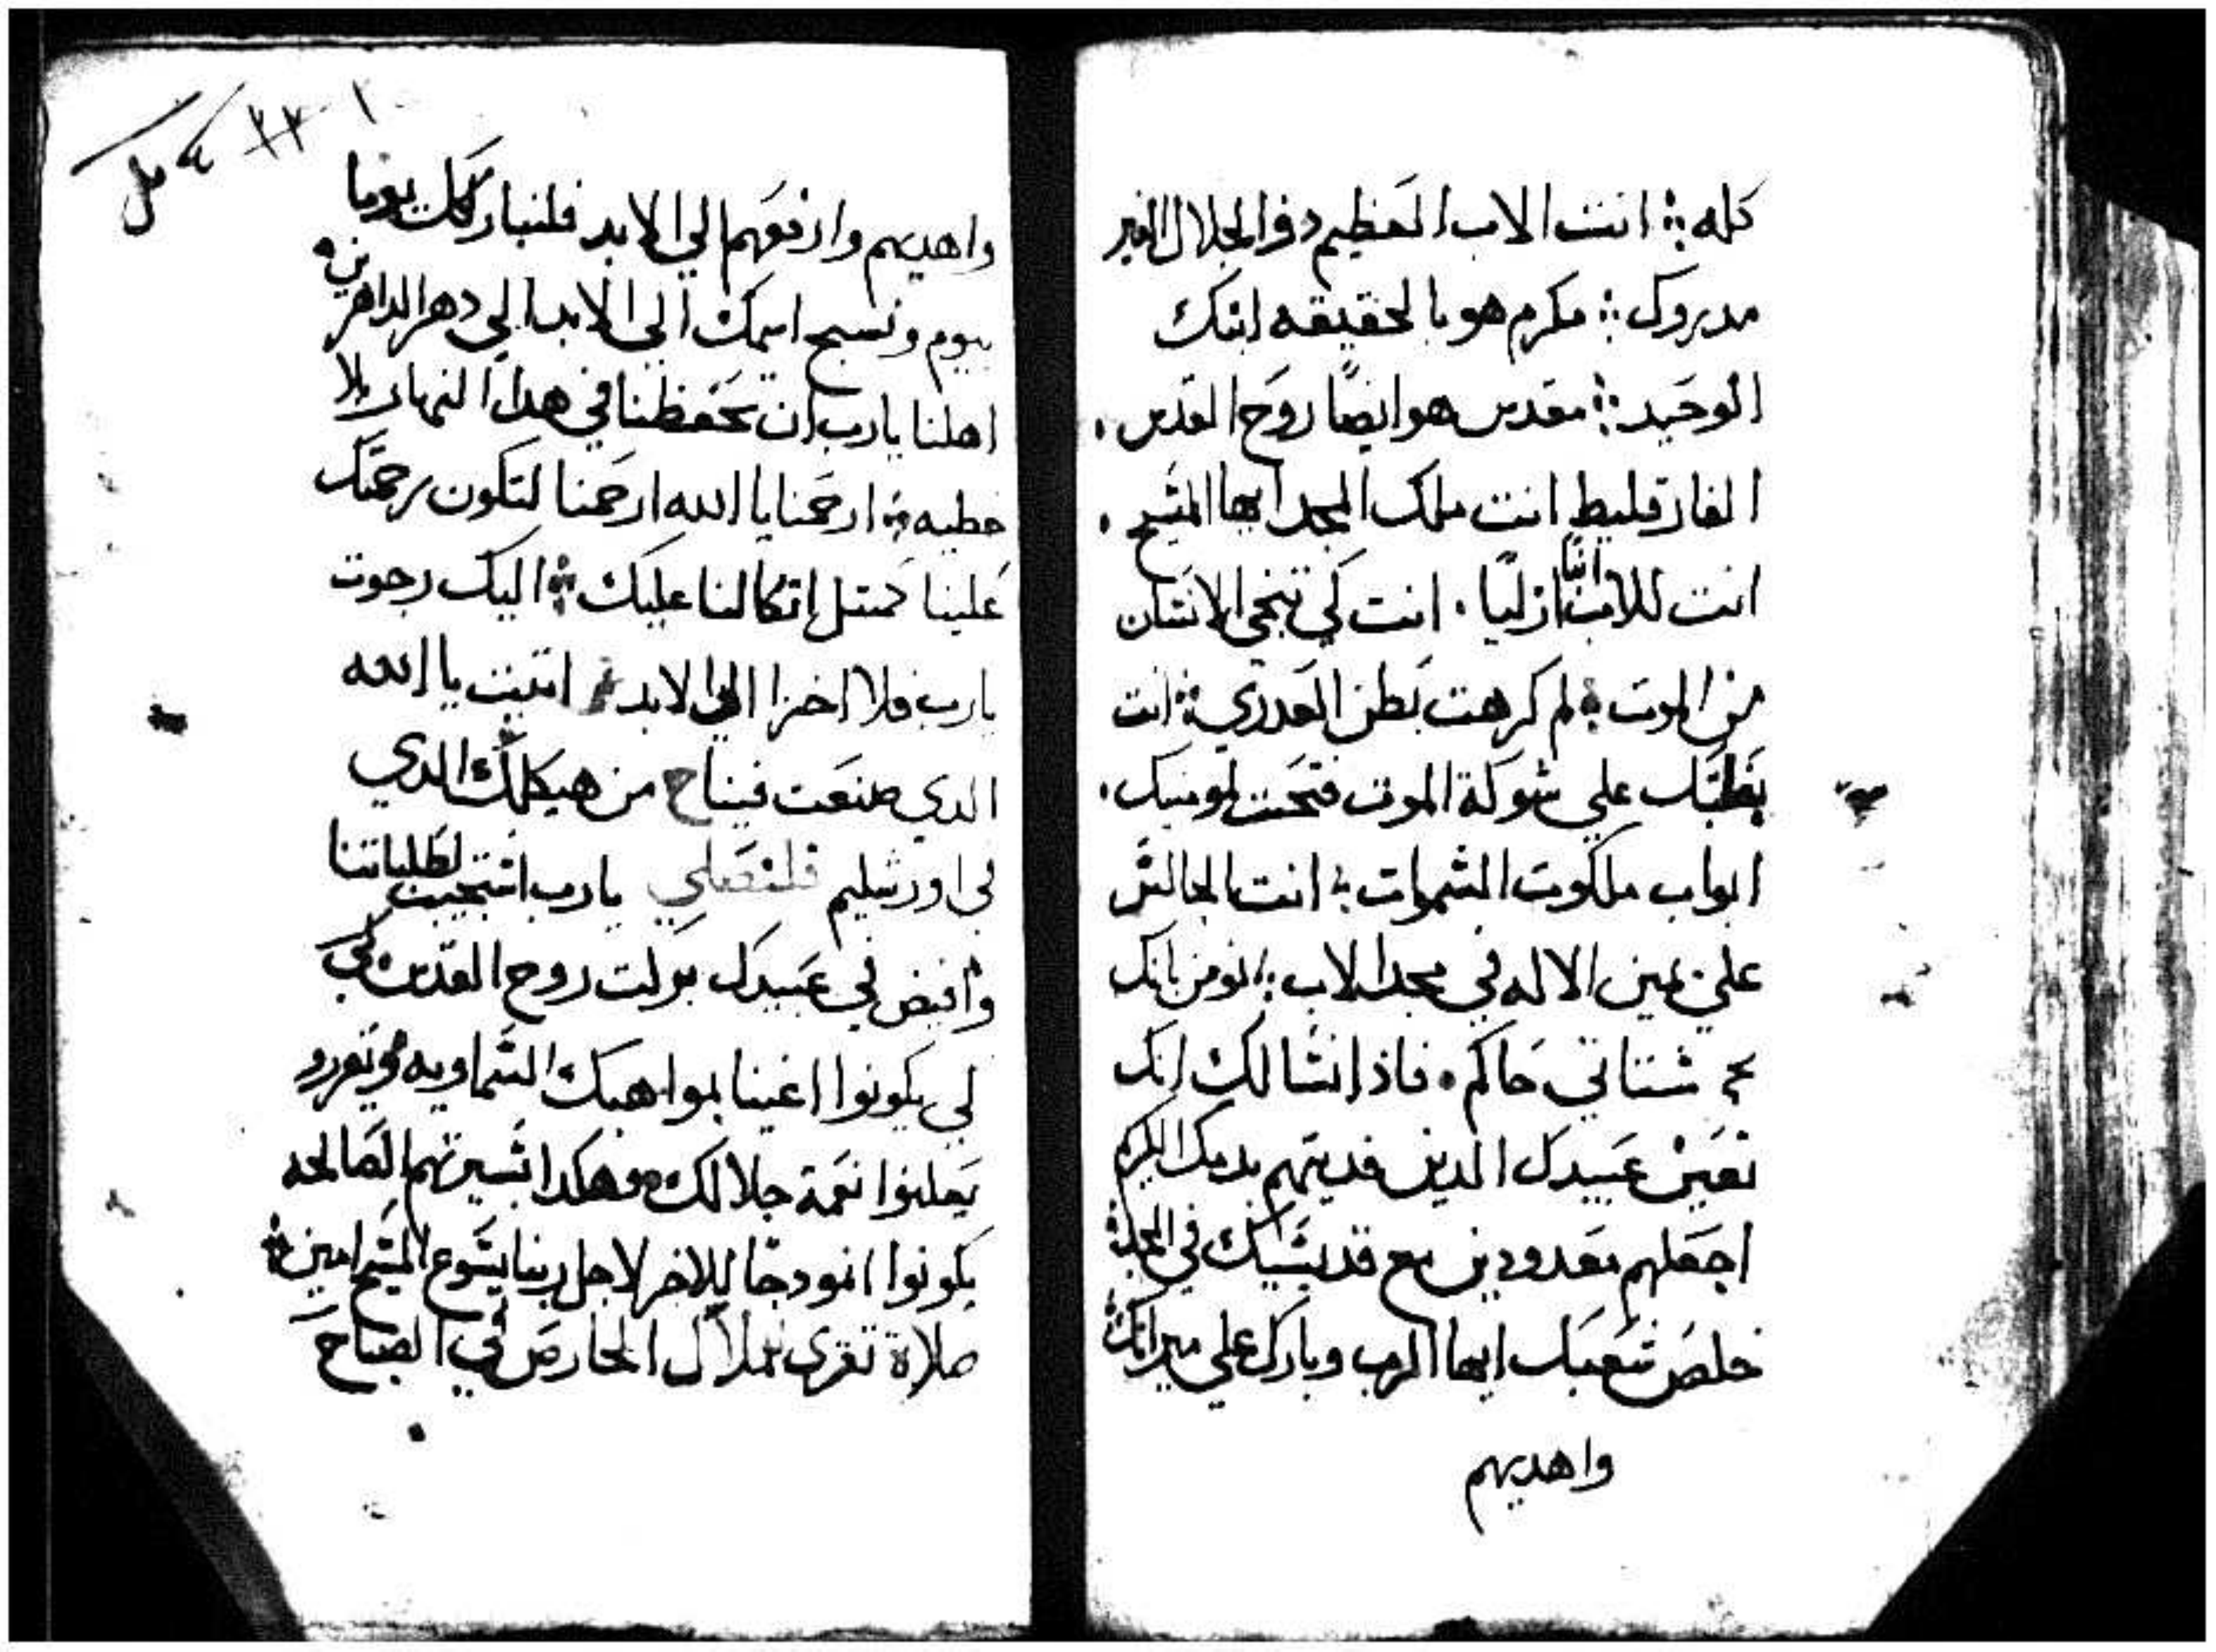 كله ؛ انت الاب العظيم دو الجلال الغير
مدروك ؛ مكرم هو بالحقيقه ابنك
الوحيد ؛ مقدس هو ايضًا روح القدس .
الفارقليط انت ملك المجد ايها المسيح .
انت للاب ابنًا ازليًا . انت كي تنجي الانسان
من الموت لم كرهت بطن العدري انت
بغلبتك علي شوكة الموت فتحت لمومنيك .
ابواب ملكوت السموات انت الجالس
علي يمين الاله في مجد الاب ؛ نومن بانك
ستاتي حاكم . فاذا نسالك انك
تعين عبيدك الدين فديتهم بدمك الكريم
اجعلهم معدودين مع قديسيك في المجد
خلص شعبك ايها الرب وبارك علي ميراتك
واهديهم
واهديهم وارفعهم الي الابد فلنباركك يوما
بيوم ونسبح اسمك الي الابد الي دهر الداهرين
اهلنا يارب ان تحفظنا في هدا النهار بلا
خطيه ارحمنا يا الله ارحمنا لتكون رحمتك
علينا كمتل اتكالنا عليك اليك رجوت
يارب فلا اخزا الي الابد اتبت يا الله
الدي صنعت فينا من هيكلك الدي
في اورشليم فلنصلي يارب استجيب لطلباتنا
وافيض في عبيدك بركت روح القدس كي
لي يكونوا اغنيا بمواهبك السماويه
يعلنوا نعمة جلالك وهكدا بسيرتهم الصالحه
يكونوا انمودجًا للاخر لاجل ربنا يسوع المسيح امين
صلاة تقري لملاك الحارص في الصباح